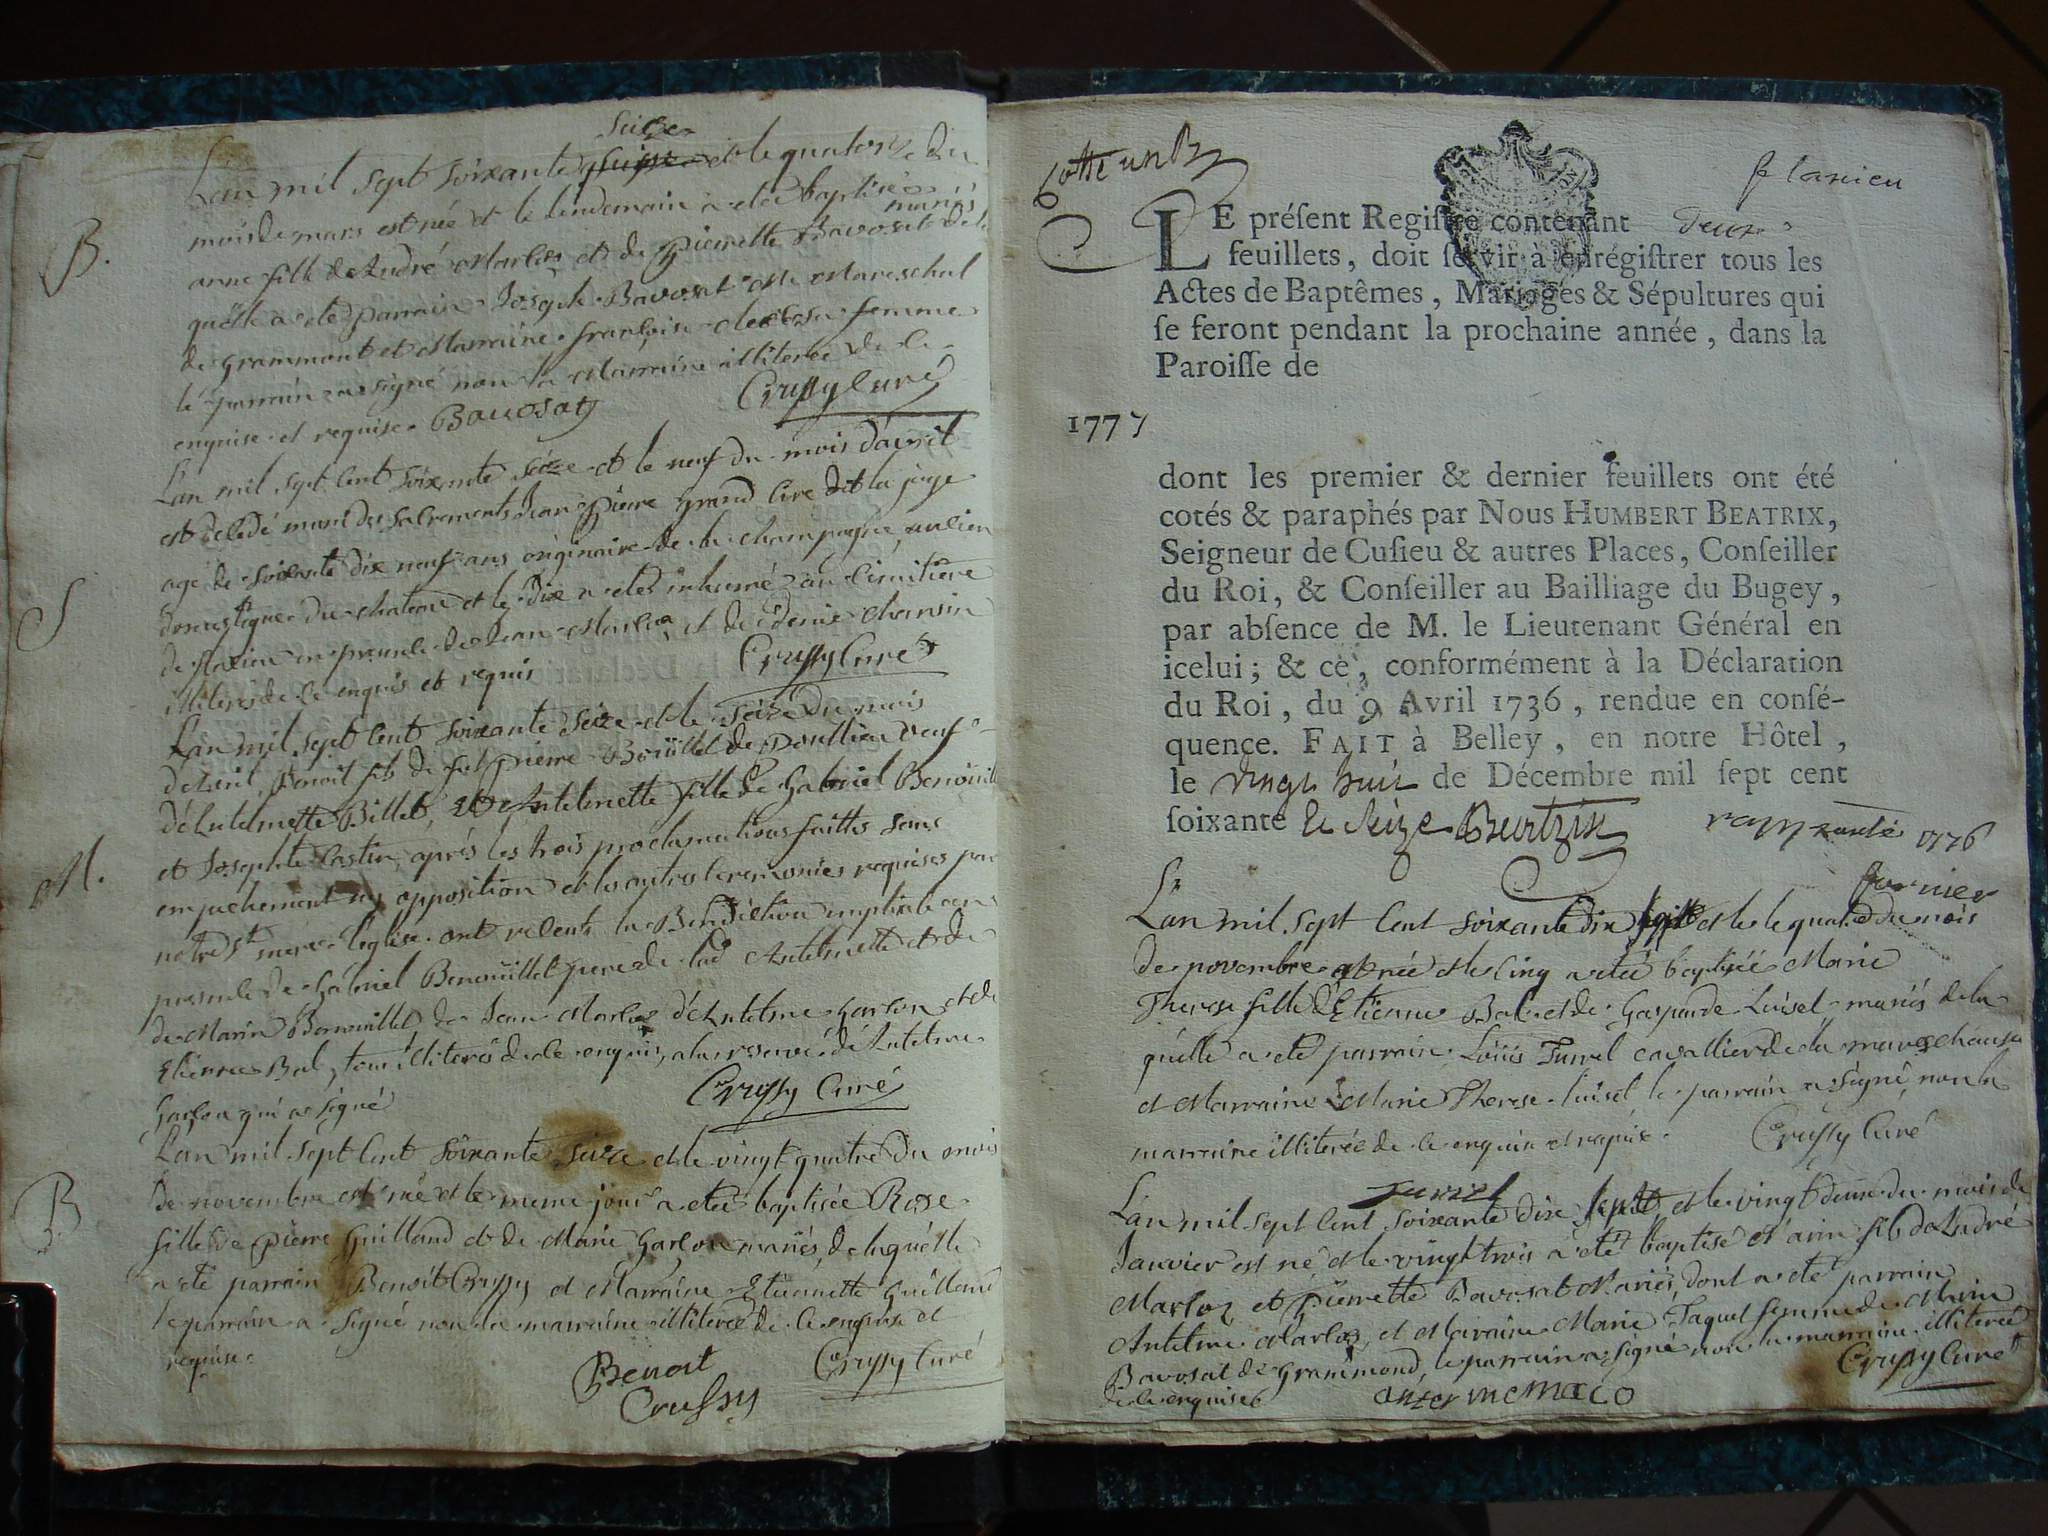 Seize
L'an mil sept soixante et le quatorze du
B.
mois de mars est née et le lendemain a etée baptisée
mariés
anne fille de André Marloz et de Pierrette Bavosat
a eté parrain Joseph Bavosat Mareschal
de Grammont et Marraine francoise femme
le parrain a signé non la Marraine illiterée de ce
enquise et requise. Bavosat Crussy Curé
L'an mil sept Cent soixante seize et le neuf du mois d'avril
S
est decedé muni des sacrements Jean Pierre Grand Cire dit la
agé de soixante dix neuf ans originaire de la champagne, ancien
domestique du chateau et le dix a eté inhumé au cimitière
de flaxieu en presence de Jean Marloz et de denis chansin
illiterés de ce enquis et requis Crussy Curé
L'an mil sept Cent soixante seize et le seize du mois
d'avril, Benoit fils de feu pierre Boüillet de Poullieu veuf
d'Antelmette Billet, et Antelmette fille de Gabriel Benoüillet
M.
et Josephte Castin, après les trois proclamations faittes sans
empechement ny opposition et les autres ceremonies requises par
notre Ste mere l'eglise ont recents la Benediction nuptiale en
presence de Gabriel Benoüillet pere de lad Antelmette et de
de Marin Benouillet, de Jean Marloz d'Antelme Garlon et de
Etienne Bal, tous illiterés de ce enquis, a la reserve d'Antelme
Garlon qui a signé Crussy Curé
L'an mil sept Cent soixante seize et le vingt quatre du mois
B
de novembre est née et le meme jour a etée baptisée Rose
fille de pierre Guilland et de Marie Garlon mariés, de laquelle
a eté parrain Benoit Crussy et Marraine Etiennette Guilland
le parrain a signé non la marraine illiterée de ce enquise et
requise. Crussy Curé
Benoit
Crussy
Cotte un flaxieu
LE préſent Regiſtre contenant deux
feuillets, doit ſervir à enrégiſtrer tous les
Actes de Baptêmes, Mariages & Sépultures qui
ſe feront pendant la prochaine année, dans la
Paroiſſe de
1777
dont les premier & dernier feuillets ont été
cotés & paraphés par Nous HUMBERT BEATRIX,
Seigneur de Cuſieu & autres Places, Conſeiller
du Roi, & Conſeiller au Bailliage du Bugey,
par abſence de M. le Lieutenant Général en
icelui; & ce, conformément à la Déclaration
du Roi, du 9 Avril 1736, rendue en conſé-
quence. FAIT à Belley, en notre Hôtel,
le vingt huit de Décembre mil ſept cent
ſoixante et seize Beatrix 1776
L'an mil sept Cent soixante dix sept et le quatre du mois
de novembre est née et le cinq a etée baptisée Marie
Therese fille d'Etienne Bal et de Gasparde Luiset mariés de la
quelle a eté parrain Loüis Turrel cavallier de la marechaussée
et Marraine Marie Therese Luiset le parrain a signé, non la
marraine illiterée de ce enquise et requise. Crussy Curé
turrel
L'an mil sept Cent soixante dix sept et le vingt deux du mois de
Janvier est né et le vingt trois a eté baptisé Marin fils de André
Marloz et pierrette Bavosat Mariés, dont a eté parrain
Antelme Marloz, et Marraine Marie Jaquet femme de Marin
Bavosat de Grammond, le parrain a signé non la marraine illiterée
de ce enquise Crussy Curé